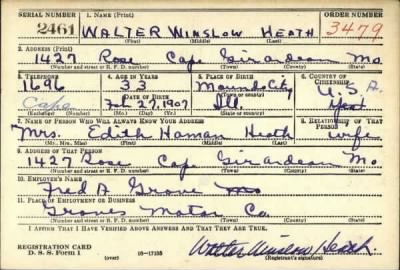 SERIAL NUMBER 1. NAME (Print) ORDER NUMBER
2461 WALTER WINSLOW HEATH 3479
(First) (Middle) (Last)
2. ADDRESS (Print)
1427 Rose Cape Girardeau Mo
(Number and street or R. F. D. number) (Town) (County) (State)
3. TELEPHONE 4. AGE IN YEARS 5. PLACE OF BIRTH 6. COUNTRY OF CITIZENSHIP
1696 33 Mound City U.S.A.
DATE OF BIRTH (Town or county)
Cape Feb. 27, 1907 Ill
(Exchange) (Number) (Mo.) (Day) (Yr.) (State or country)
7. NAME OF PERSON WHO WILL ALWAYS KNOW YOUR ADDRESS 8. RELATIONSHIP OF THAT PERSON
Mrs. Edith Haman Heath wife
(Mr., Mrs., Miss) (First) (Middle) (Last)
9. ADDRESS OF THAT PERSON
1427 Rose Cape Girardeau Mo
(Number and street or R. F. D. number) (Town) (County) (State)
10. EMPLOYER'S NAME
Fred A Grove
11. PLACE OF EMPLOYMENT OR BUSINESS
Groves Motor Co
(Number and street or R. F. D. number) (Town) (County) (State)
I AFFIRM THAT I HAVE VERIFIED ABOVE ANSWERS AND THAT THEY ARE TRUE.
REGISTRATION CARD
D. S. S. FORM 1 (over) 16-17105 Walter Winslow Heath
(Registrant's signature)